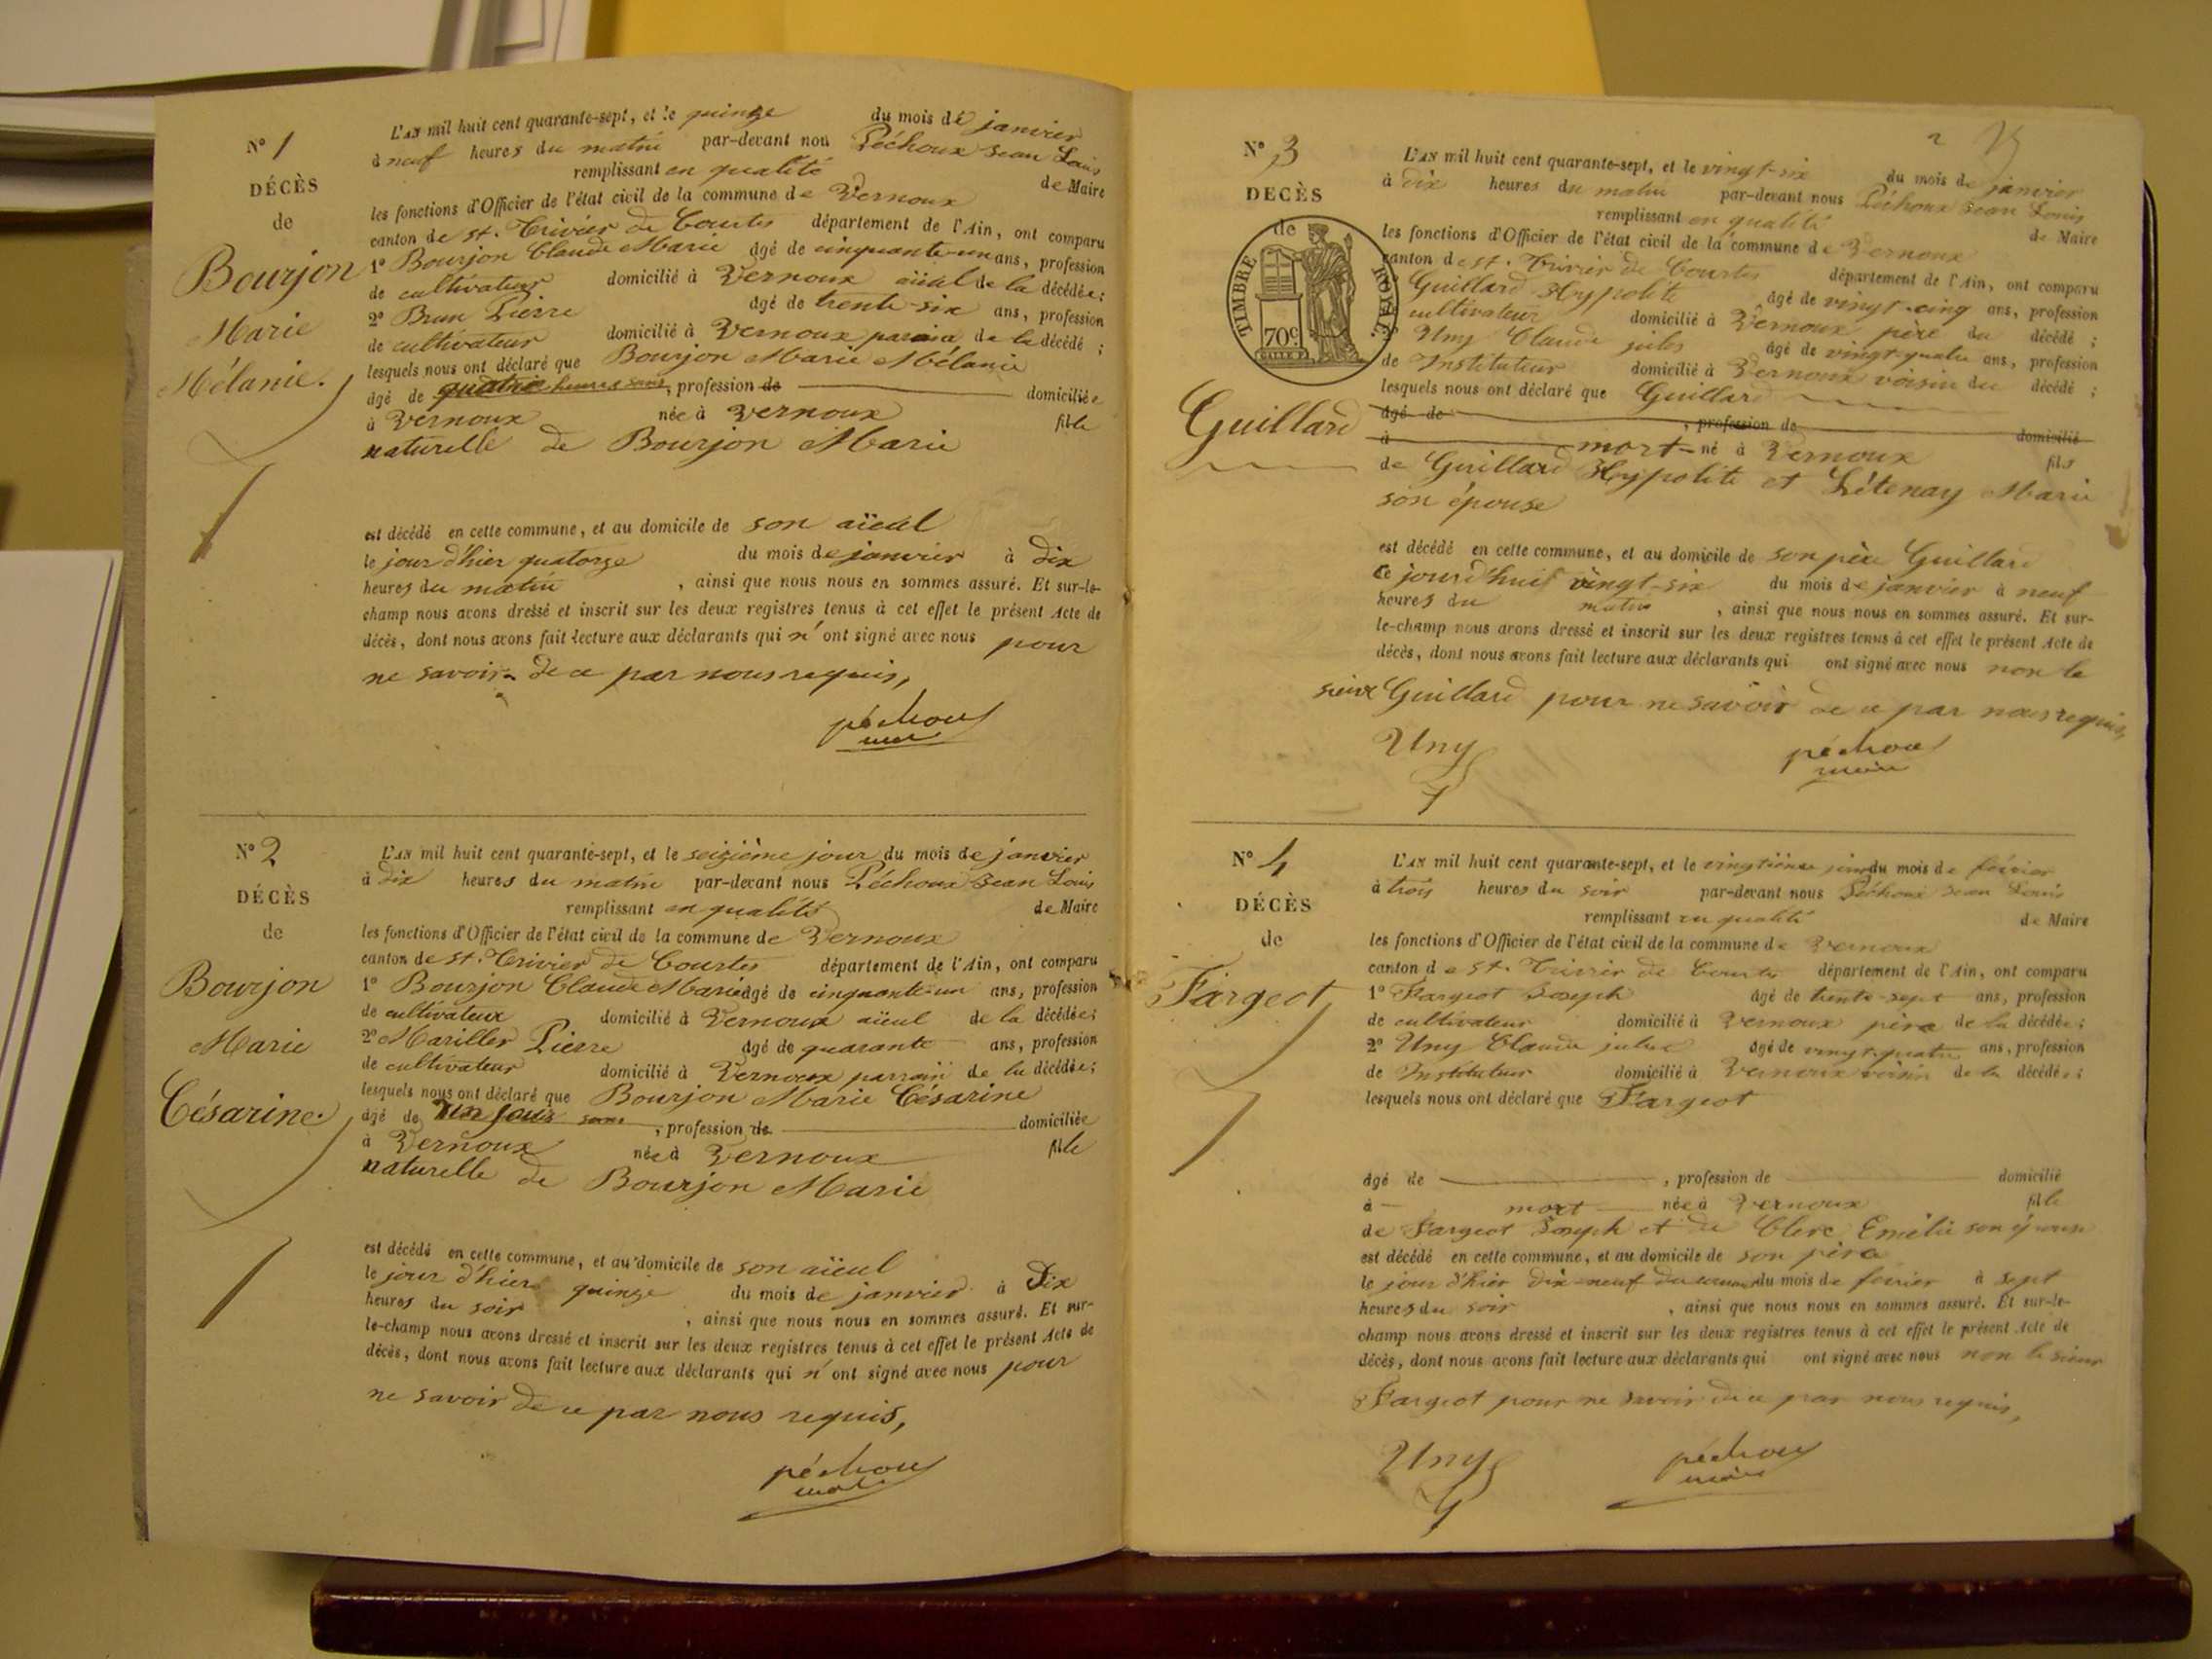 N° 1
DÉCÈS
de
Bourjon
Marie
Mélanie.
L'AN mil huit cent quarante-sept, et le quinze du mois de janvier
à neuf heures du matin par-devant nou Péchoux Jean Louis
remplissant en qualité de Maire
les fonctions d'Officier de l'état civil de la commune de Vernoux
canton de St. Trivier de Courtes département de l'Ain, ont comparu
1° Bourjon Claude Marie âgé de cinquante-un ans, profession
de cultivateur domicilié à Vernoux aïeul de la décédée;
2° Brun Pierre âgé de trente-six ans, profession
de cultivateur domicilié à Vernoux parain de la décédé;
lesquels nous ont déclaré que Bourjon Marie Mélanie
âgé de quatre heures sans, profession de domiciliée
à Vernoux née à Vernoux fille
naturelle de Bourjon Marie
est décédé en cette commune, et au domicile de son aïeul
le jour d'hier quatorze du mois de janvier à dix
heures du matin, ainsi que nous nous en sommes assuré. Et sur-le-
champ nous avons dressé et inscrit sur les deux registres tenus à cet effet le présent Acte de
décès, dont nous avons fait lecture aux déclarants qui n'ont signé avec nous pour
ne savoir de ce par nous requis,
péchoux
N° 2
DÉCÈS
de
Bourjon
Marie
Césarine.
L'AN mil huit cent quarante-sept, et le seizième jour du mois de janvier
à dix heures du matin par-devant nous Péchoux Jean Louis
remplissant en qualité de Maire
les fonctions d'Officier de l'état civil de la commune de Vernoux
canton de St. Trivier de Courtes département de l'Ain, ont comparu
1° Bourjon Claude Marie âgé de cinquante-un ans, profession
de cultivateur domicilié à Vernoux aïeul de la décédée;
2° Mariller Pierre âgé de quarante ans, profession
de cultivateur domicilié à Vernoux parrain de la décédée;
lesquels nous ont déclaré que Bourjon Marie Césarine
âgé de un jour sans, profession de domiciliée
à Vernoux née à Vernoux fille
naturelle de Bourjon Marie
est décédé en cette commune, et au domicile de son aïeul
le jour d'hier quinze du mois de janvier à Dix
heures du soir, ainsi que nous nous en sommes assuré. Et sur-
le-champ nous avons dressé et inscrit sur les deux registres tenus à cet effet le présent Acte de
décès, dont nous avons fait lecture aux déclarants qui n'ont signé avec nous pour
ne savoir de ce par nous requis,
péchoux
2
N° 3
DECÈS
de
TIMBRE ROYAL
70c
Guillard
L'AN mil huit cent quarante-sept, et le vingt-six du mois de janvier
à dix heures du matin par-devant nous Péchoux Jean Louis
remplissant en qualité de Maire
les fonctions d'Officier de l'état civil de la commune de Vernoux
canton de St. Trivier de Courtes département de l'Ain, ont comparu
Guillard Hypolite âgé de vingt-cinq ans, profession
cultivateur domicilié à Vernoux père du décédé;
Uny Claude jules âgé de vingt-quatre ans, profession
de Instituteur domicilié à Vernoux voisin du décédé;
lesquels nous ont déclaré que Guillard
âgé de, profession de domicilié
à mort-né à Vernoux fils
de Guillard Hypolite et Létenay Marie
son épouse
est décédé en cette commune, et au domicile de son père Guillard
ce jourd'hui vingt-six du mois de janvier à neuf
heures du matin, ainsi que nous nous en sommes assuré. Et sur-
le-champ nous avons dressé et inscrit sur les deux registres tenus à cet effet le présent Acte de
décès, dont nous avons fait lecture aux déclarants qui ont signé avec nous non le
sieur Guillard pour ne savoir de ce par nous requis,
Uny péchoux
maire
N° 4
DÉCÈS
de
Fargeot
L'AN mil huit cent quarante-sept, et le vingtième jour du mois de février
à trois heures du soir par-devant nous Péchoux Jean Louis
remplissant en qualité de Maire
les fonctions d'Officier de l'état civil de la commune de Vernoux
canton de St. Trivier de Courtes département de l'Ain, ont comparu
1° Fargeot Joseph âgé de trente-sept ans, profession
de cultivateur domicilié à Vernoux père de la décédée;
2° Uny Claude jules âgé de vingt-quatre ans, profession
de Instituteur domicilié à Vernoux voisin de la décédée;
lesquels nous ont déclaré que Fargeot
âgé de, profession de domicilié
à mort née à Vernoux fille
de Fargeot Joseph et de Clerc Emélie son épouse
est décédé en cette commune, et au domicile de son père
le jour d'hier dix-neuf du mois de février à sept
heures du soir, ainsi que nous nous en sommes assuré. Et sur-le-
champ nous avons dressé et inscrit sur les deux registres tenus à cet effet le présent Acte de
décès, dont nous avons fait lecture aux déclarants qui ont signé avec nous non le sieur
Fargeot pour ne savoir de ce par nous requis,
Uny péchoux
maire